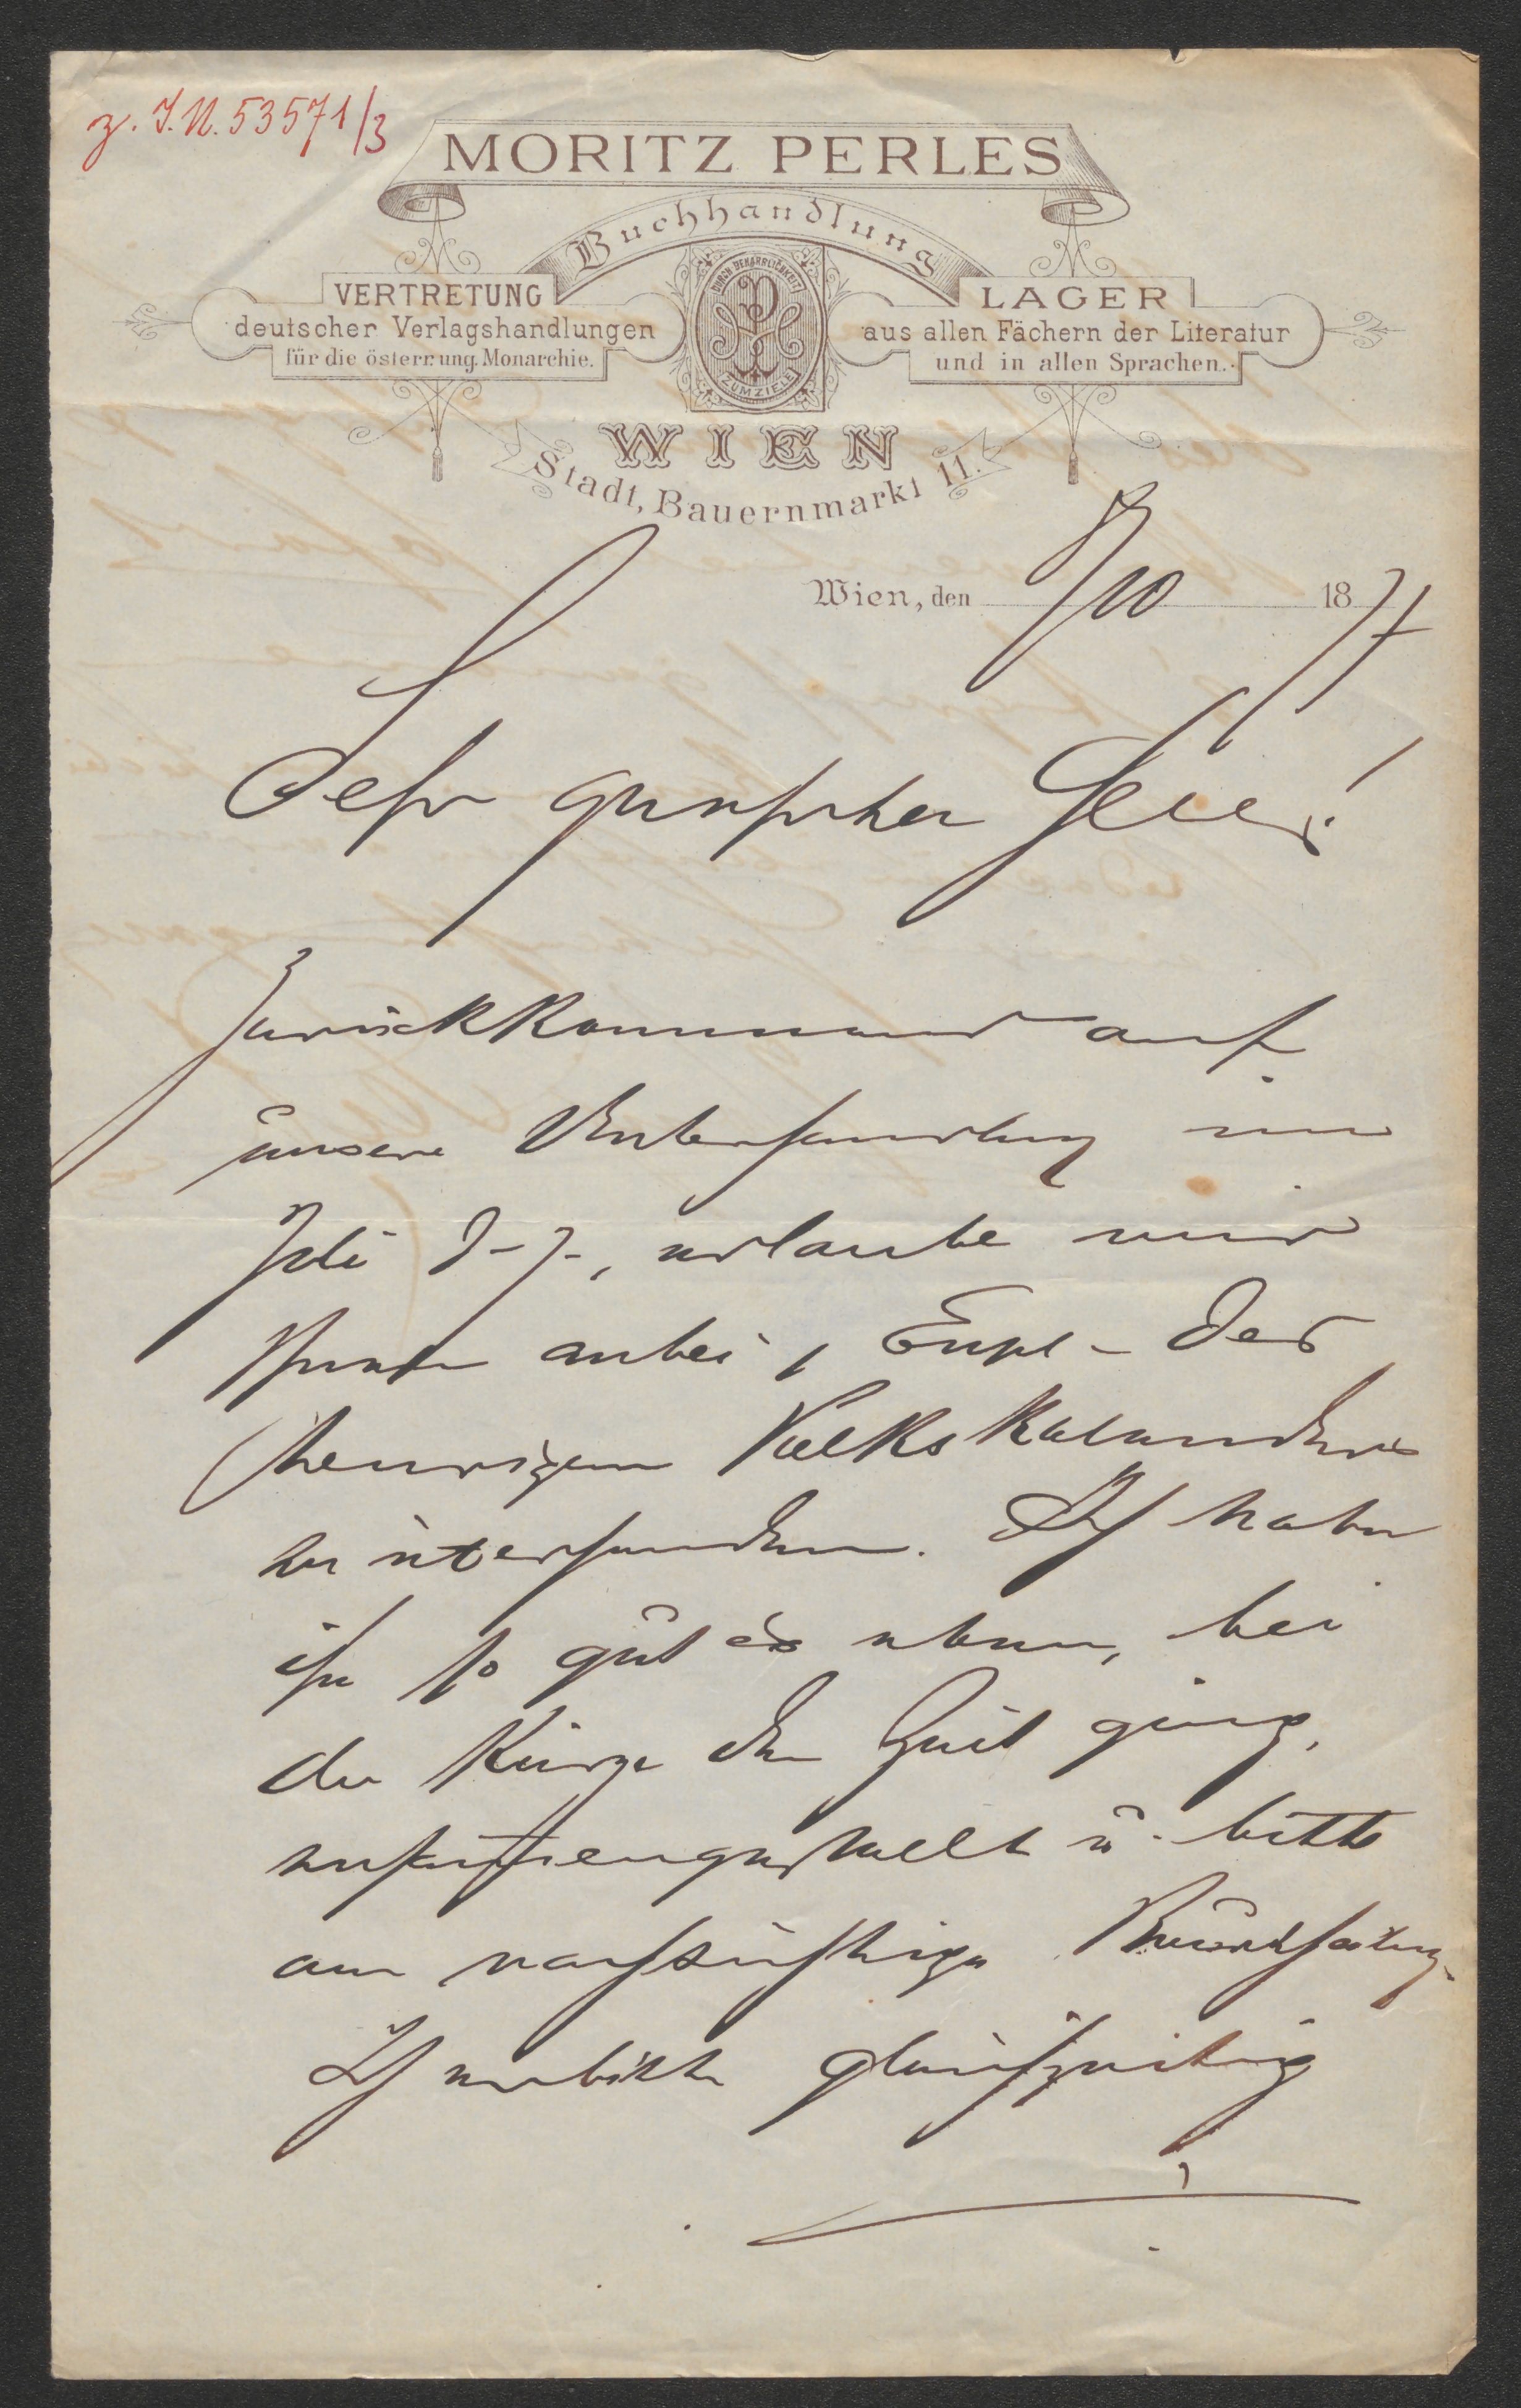 z. I.N. 53571/3
MORITZ PERLES
Buchhandlung
VERTRETUNG
deutscher Verlagshandlungen
für die österr. ung. Monarchie.
DURCH BEHARRLICHKEIT
ZUM ZIELE
LAGER
aus allen Fächern der Literatur
und in allen Sprachen.
WIEN
Stadt, Bauernmarkt 11.
Wien, den 8/10 1877
Sehr geehrter Herr!
Zurückkommend auf
unsere Unterhandlung im
Juli d. J., erlaube mir
Ihnen anbei 1 Expl. des
heurigen Volkskalenders
zu übersenden. Ich habe
ihn so gut es eben, bei
der Kürze der Zeit ging,
zusammengestellt u. bitte
um nachsichtige Beurtheilung.
Ich erbitte gleichzeitig